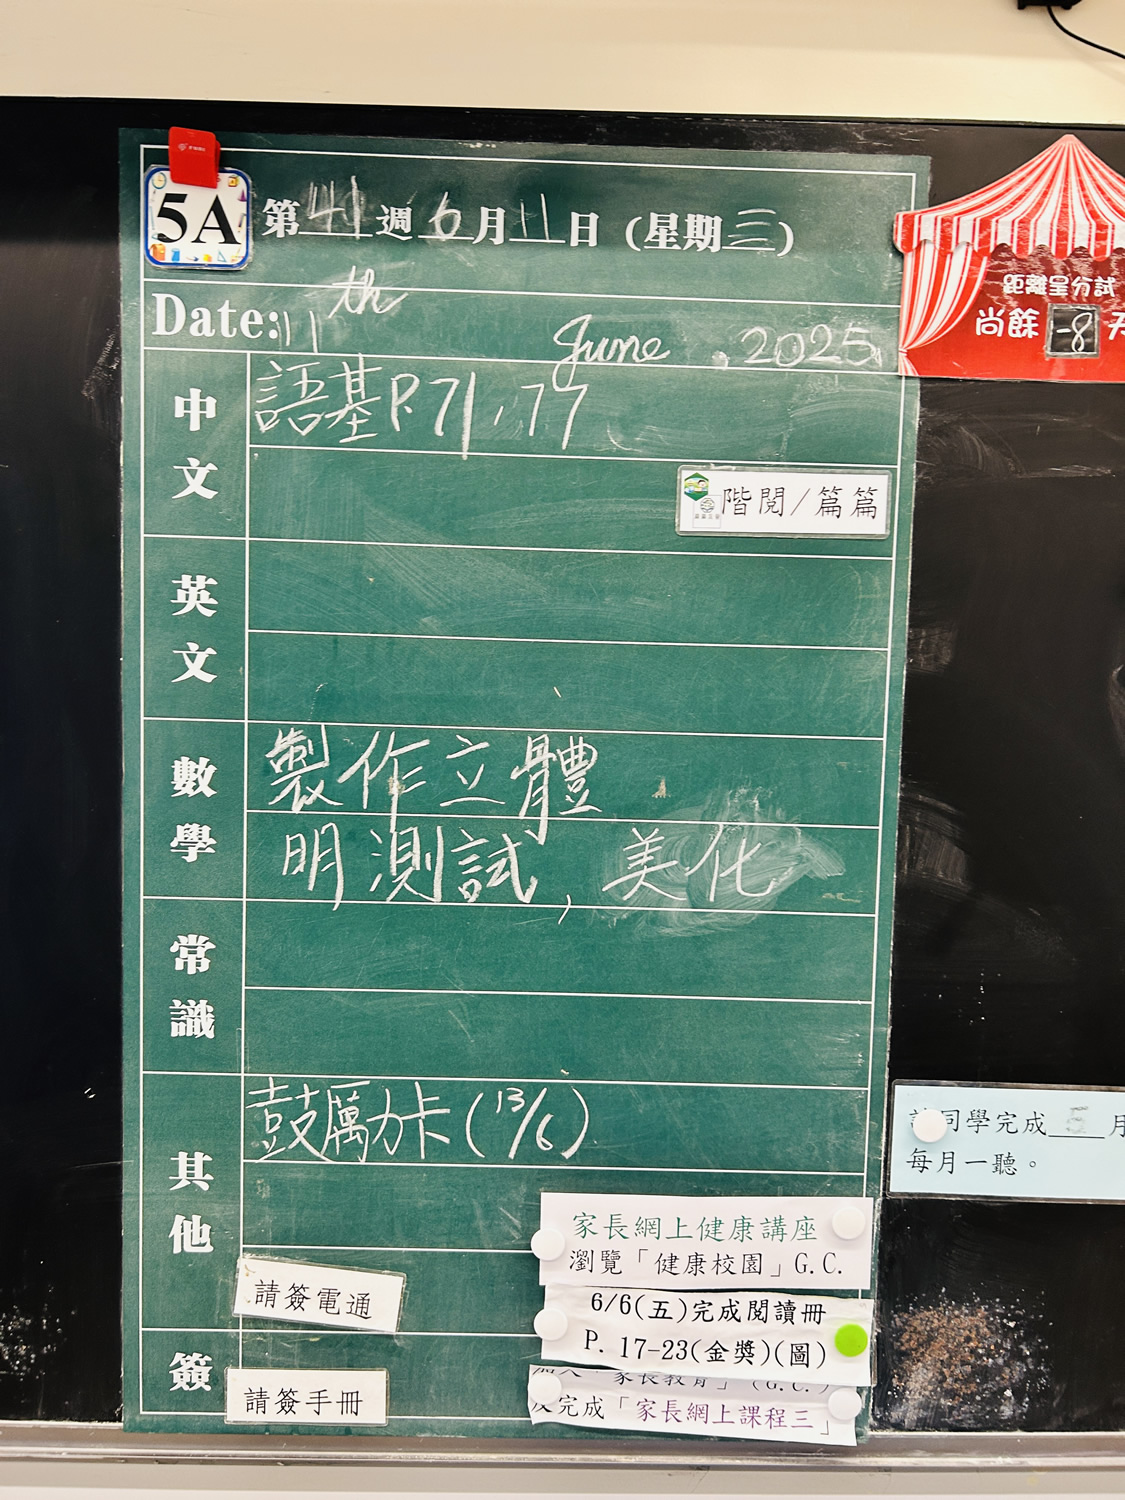 5A
第41週6月11日（星期三）
Date: 11th June, 2025
距離呈分試
尚餘-8天
中文
語基P.71,77
階閱/篇篇
英文
數學
製作立體
明測試，美化
常識
其他
鼓厲力卡(13/6)
同學完成5月
每月一聽。
家長網上健康講座
瀏覽「健康校園」G.C.
請簽電通
6/6(五)完成閱讀冊
P. 17-23(金獎)(圖)
簽
請簽手冊
加入「家長教育」(G.C.)
及完成「家長網上課程三」